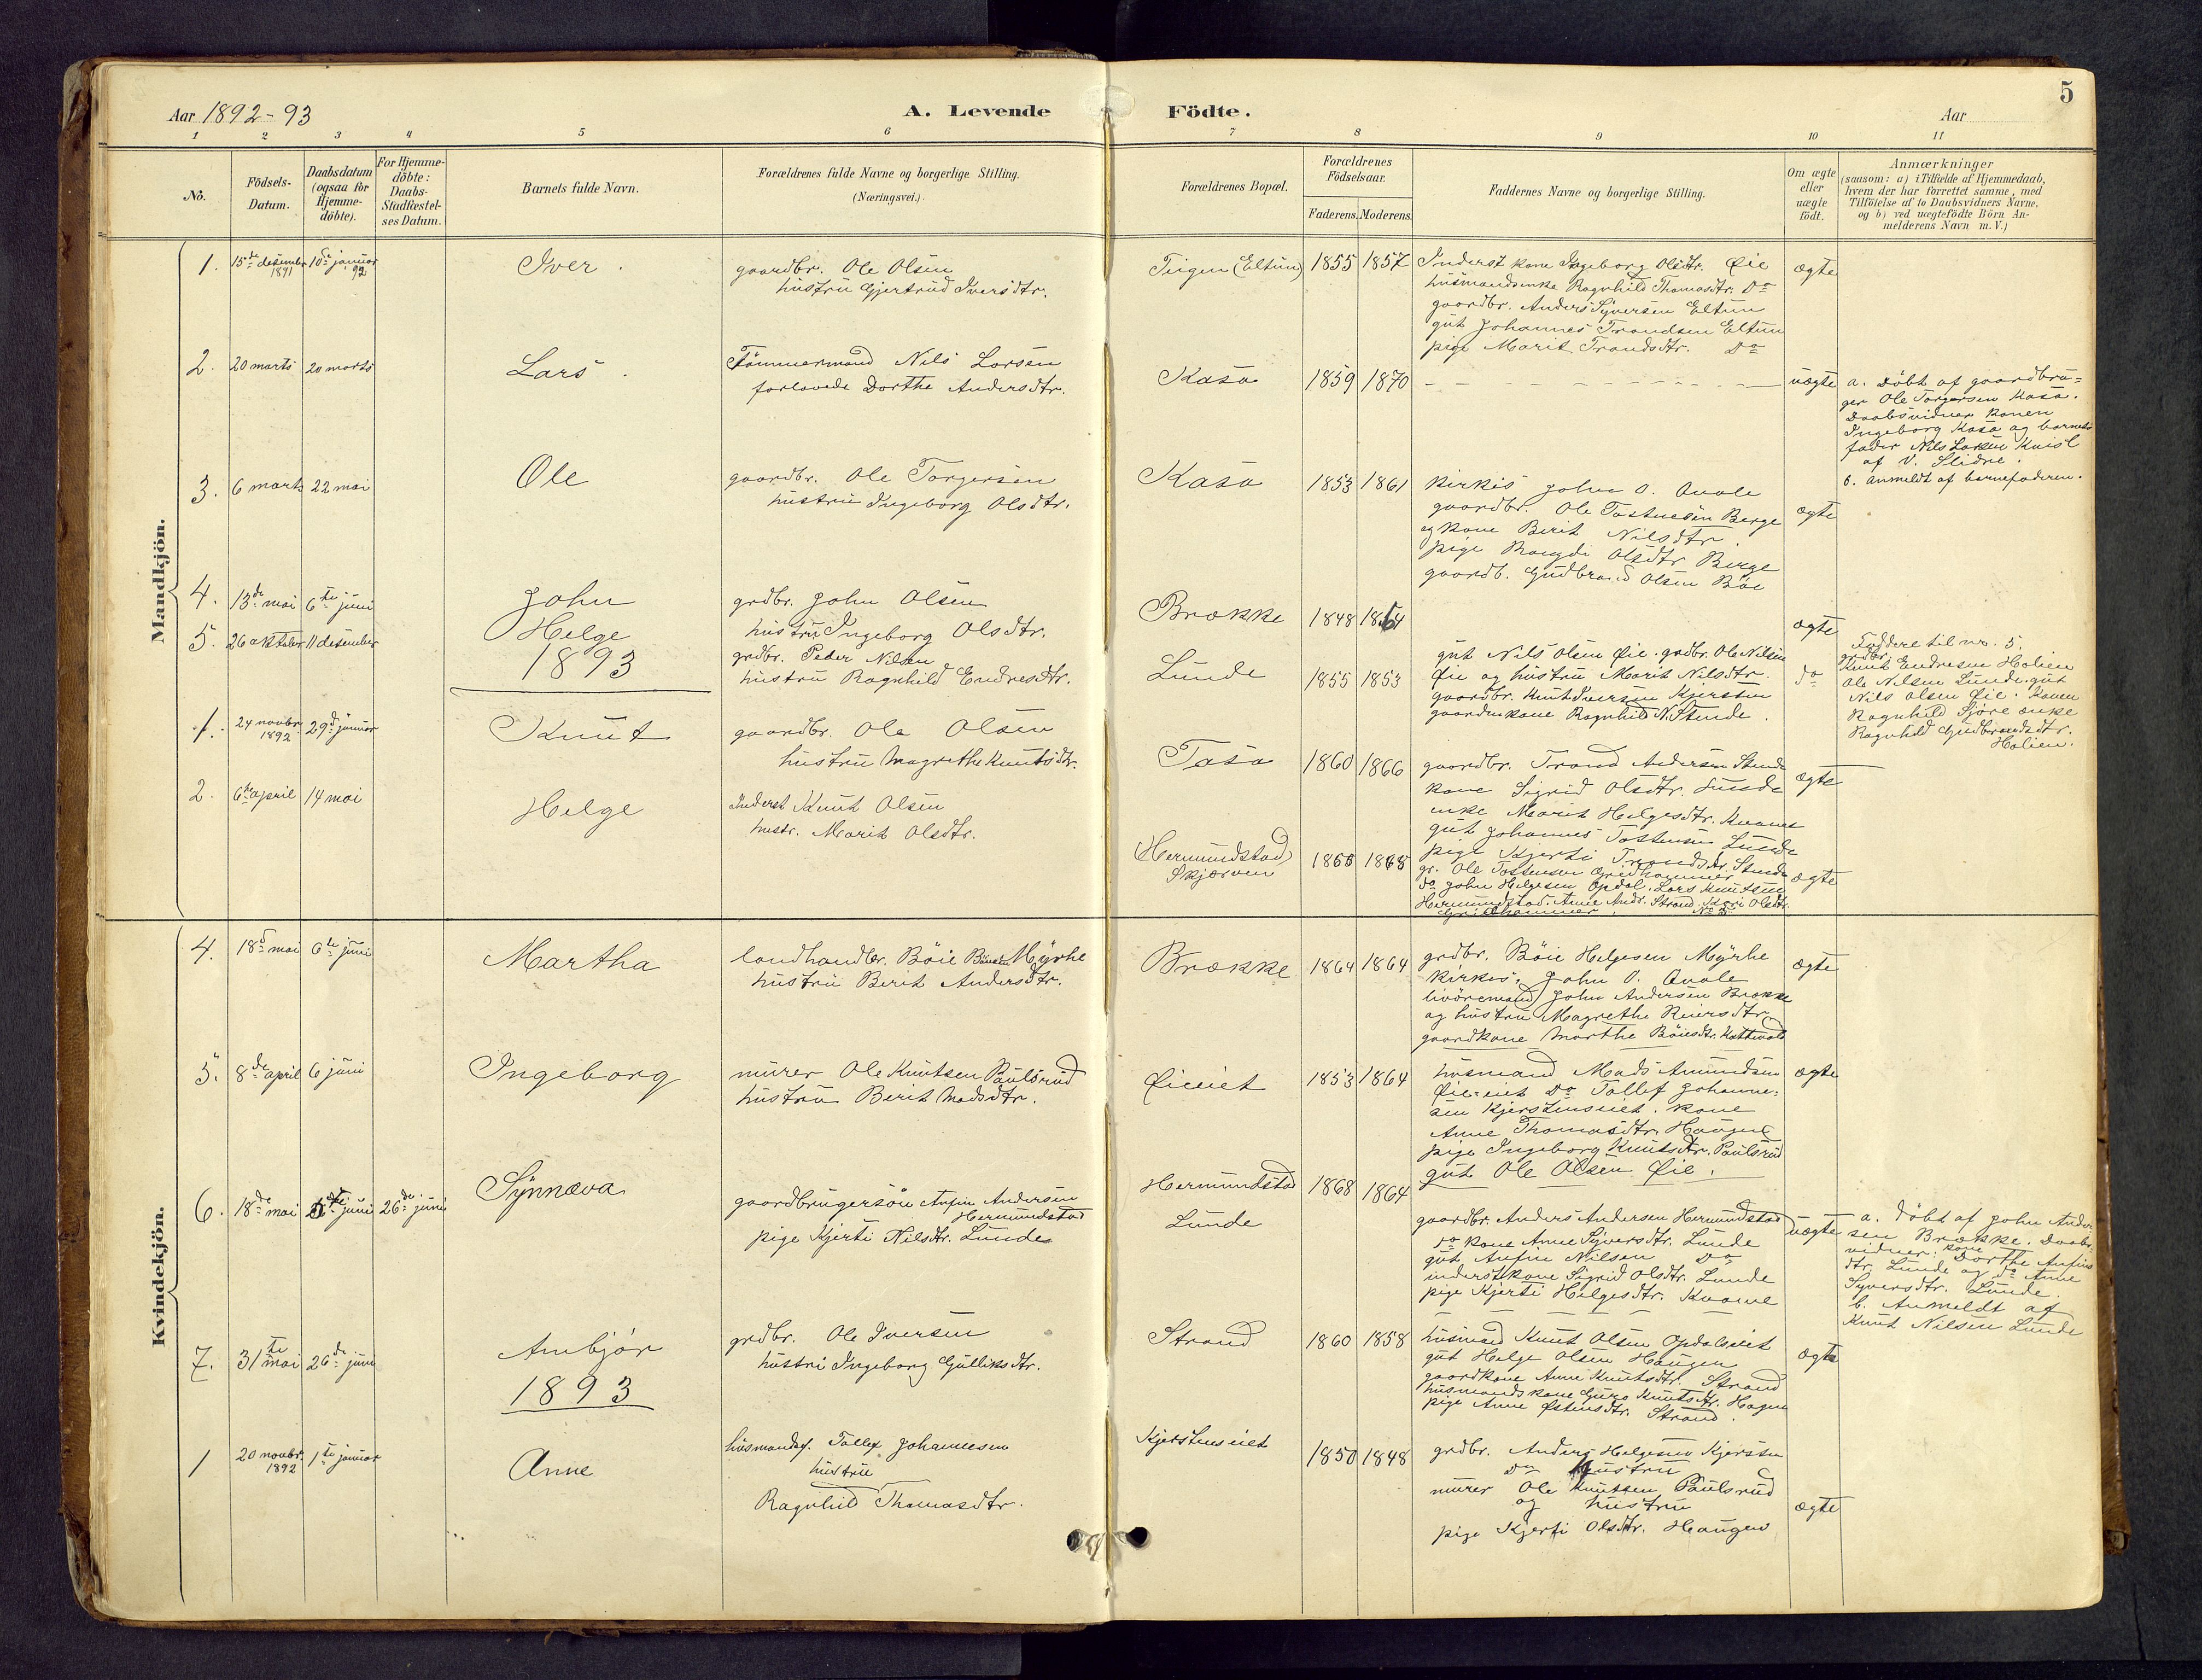 5
Aar 1892-93
A. Levende Födte.
Aar
1 2 3 4 5 6 7 8 9 10 11
No.
Födsels-Datum.
Daabsdatum (ogsaa for Hjemme-döbte).
For Hjemme-döbte: Daabs-Stadfæstel-ses Datum.
Barnets fulde Navn.
Forældrenes fulde Navne og borgerlige Stilling.
(Næringsvei.)
Forældrenes Bopæl.
Forældrenes Födselsaar.
Faderens. Moderens.
Faddernes Navne og borgerlige Stilling.
Om ægte eller uægte födt.
Anmærkninger
(saasom: a) i Tilfælde af Hjemmedaab,
hvem der har forrettet samme, med
Tilföielse af to Daabsvidners Navne.
og b) ved uægtefödte Börn An-
melderens Navn m.V.)
Mandkjön.
1. 15de desember 1891 10de januar 92 Iver.
gaardbr. Ole Olsen
hustru Gjertrud Iversdtr.
Tiigen (Eltun) 1855 1857
Inderst kone Ingeborg Olsdtr. Øie
husmandsenke Ragnhild Thomasdtr. Do
gaardbr. Anders Syversen Eltun
gut Johannes Trondsen Eltun
pige Marit Trondsdtr. Do
ægte
2. 20 marts 20 marts Lars.
Tömmermand Nils Larsen
forlovede Dorthe Andersdtr.
Kasa 1859 1870
uægte
a. Döbt af gaardbru-
ger Ole Torgersen Kasa.
Daabsvidner konen
Ingeborg Kasa og barnets
fader Nils Larsen Kvisl
af V. Slidre.
b. Anmeldt af barnefaderen.
3. 6 marts 22 mai Ole
gaardbr. Ole Torgersen
hustru Ingeborg Olsdtr.
Kasa 1853 1861
kirkes. John O. Qvale
gaardbr. Ole Tostensen Berge
og kone Berit Nilsdtr.
pige Rangdi Olsdtr Berge
gaardb. Gudbrand Olsen Böe
ægte
4. 13de mai 6te juni John
grdbr. John Olsen
hustru Ingeborg Olsdtr.
Brække 1848 1854
gut Nils Olsen Øie. grdbr. Ole Nilsen
Øie og hustru Marit Nilsdtr.
gaardbr. Knut Iversen Kjersten
gaardmkone Ragnhild N. Stende.
ægte
5. 26 oktober 11 desember Helge
grdbr. Peder Nilsen
hustru Ragnhild Endresdtr.
Lunde 1855 1853
do
Faddere til nr. 5.
grdbr.
Knut Endresen Holien
Ole Nilsen Lunde. gut
Nils Olsen Øie. Konen
Ragnhild Sjöre enke
Ragnhild Gudbrandsdtr.
Holien.
1893
1. 24 novbr. 1892 29de januar Knut
gaardbr. Ole Olsen
hustru Magrethe Knutsdtr.
Tasa 1860 1866
gaardbr. Trond Andersen Stende
kone Sigrid Olsdtr. Lunde
enke Marit Helgesdtr. Kvame
gut Johannes Tostensen Lunde
pige Kjersti Trondsdtr. Stende
ægte
2. 6te april 14 mai Helge
Inderst Knut Olsen
hustr. Marit Olsdtr.
Hermundstad
Skjerven 1868
gr. Ole Tostensen Gridhammer
do John Helgesen Opdal. Lars Knutsen
Hermundstad. Anne Ands. Strand. Kari Olsdtr.
Gridhammer.
ægte
Kvindekjön.
4. 18de mai 6te juni Martha
landhandler. Böie Böiesen Myrhe
hustru Berit Andersdtr.
Brække 1864 1864
grdbr. Böie Helgesen Myrhe
kirkes. John O. Qvale
livöremand John Andersen Brække
og hustru Magrethe Reiersdtr.
gaardkone Marthe Böiesdtr. Kattevold
ægte
5. 8de april 6 juni Ingeborg
murer Ole Knutsen Paulsrud
hustru Berit Madsdtr.
Øieeiet 1853 1864
husmand Mads Amundsen
Øie=eiet Do Tollef Johanne=
sen Kjerstenseiet. kone
Anne Thomasdtr. Haugen
pige Ingeborg Knutsdtr. Paulsrud
gut Ole Olsen Øie.
ægte
6. 18de mai juni 26de juni Synnæva
gaardbrugersön Anfin Andersen
Hermundstad
pige Kjerti Nilsdtr. Lunde
Hermundstad
Lunde 1868 1864
gaardbr. Anders Andersen Hermundstad
do kone Anne Syversdtr. Lunde
gut Anfin Nilsen Do
inderstkone Sigrid Olsdtr. Lunde
pige Kjerti Helgesdtr. Kvame
uægte
a. Döbt af John Ander
sen Brække. Daabs-
vidner: kone Dorthe Anfins
dtr. Lunde og do Anne
Syversdtr. Lunde.
b. Anmeldt af
Knut Nilsen Lunde
7. 31te mai 26de juni Ambjör
grdbr. Ole Iversen
hustru Ingeborg Gulliksdtr.
Strand 1860 1858
husmand Knut Olsen Opdalseiet
gut Helge Olsen Haugen
gaardkone Anne Knutsdtr. Strand
husmandskone Guro Knutsdtr. Hagen
pige Anne Østensdtr. Strand.
ægte
1893
1 20 novbr. 1892 1te januar Anne
husmandsf. Tollef Johannesen
hustru
Ragnhild Thomasdtr.
Kjerstenseiet 1850 1848
grdbr. Anders Helgesen Kjersten
Do hustru
murer Ole Knutsen Paulsrud
og hustru
pige Kjerti Olsdtr. Haugen
ægte